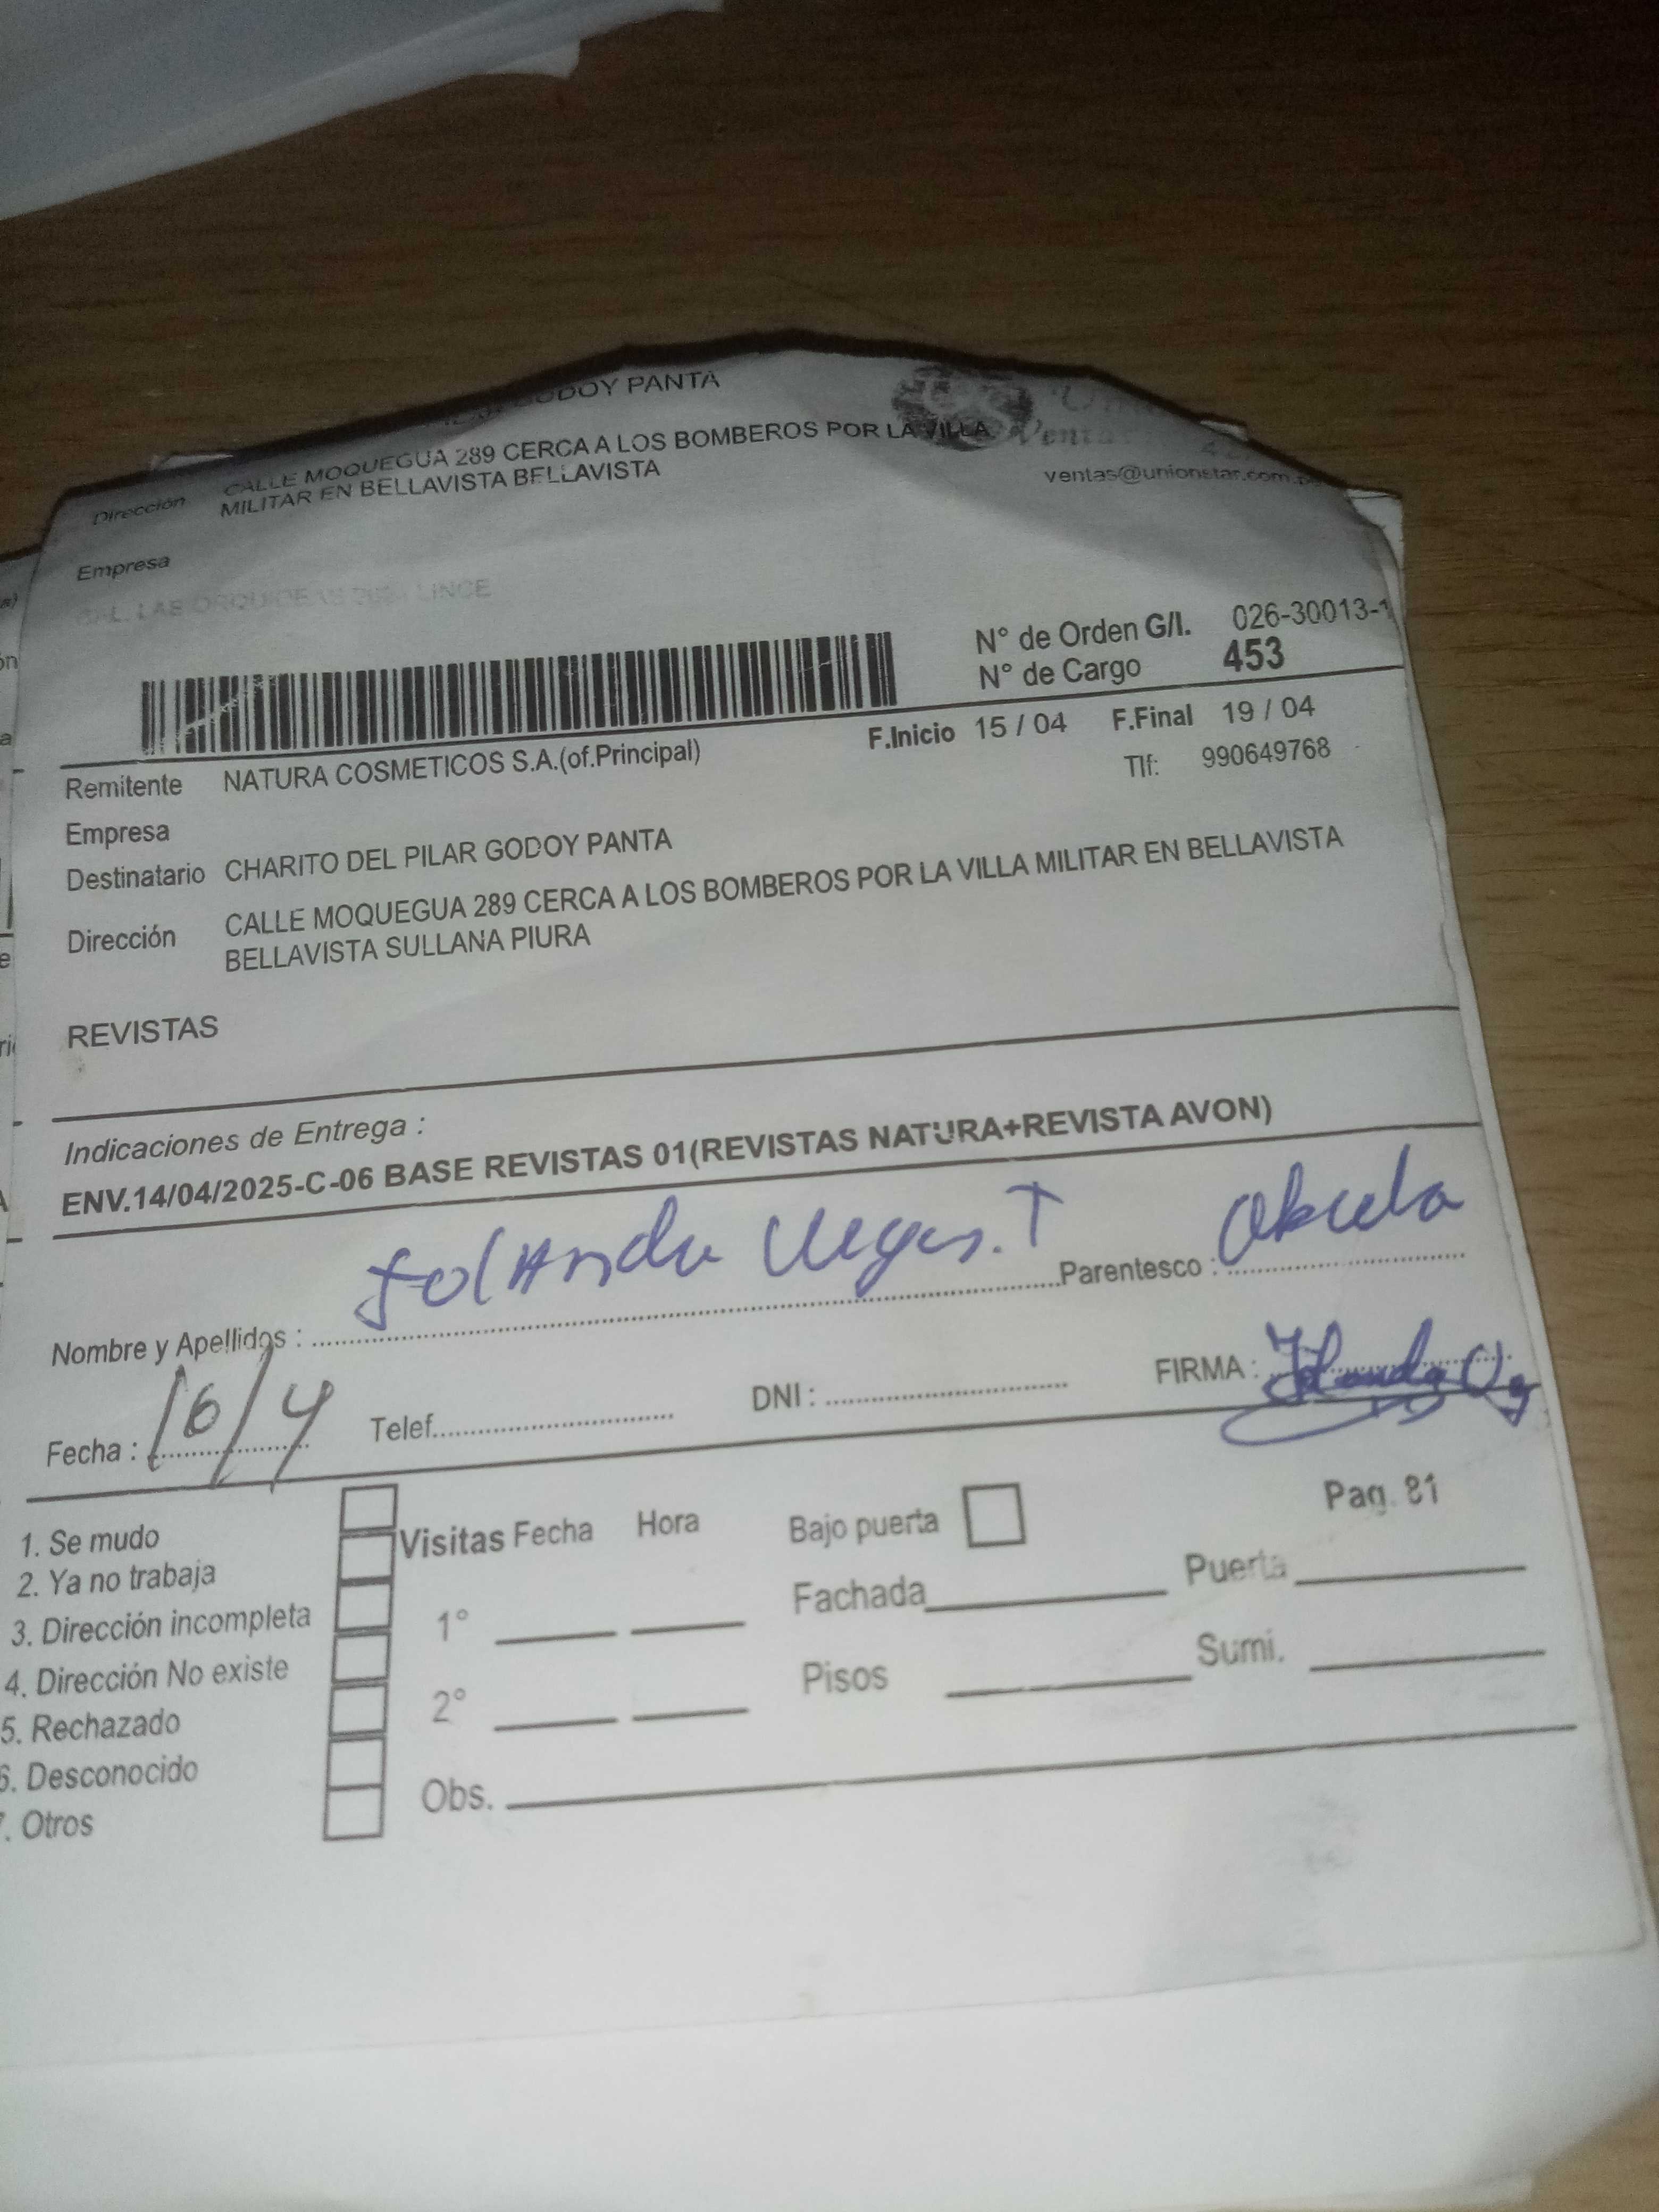 GODOY PANTA
Dirección CALLE MOQUEGUA 289 CERCA A LOS BOMBEROS POR LA VILLA
MILITAR EN BELLAVISTA BELLAVISTA
ventas@unionstar.com
Empresa
LAS ORQUIDEAS LINCE
N° de Orden G/I. 026-30013-1
N° de Cargo 453
F.Inicio 15 / 04 F.Final 19 / 04
Remitente NATURA COSMETICOS S.A.(of.Principal)
Tlf: 990649768
Empresa
Destinatario CHARITO DEL PILAR GODOY PANTA
Dirección CALLE MOQUEGUA 289 CERCA A LOS BOMBEROS POR LA VILLA MILITAR EN BELLAVISTA
BELLAVISTA SULLANA PIURA
REVISTAS
Indicaciones de Entrega :
ENV.14/04/2025-C-06 BASE REVISTAS 01(REVISTAS NATURA+REVISTA AVON)
Nombre y Apellidos : Yolanda Vegas. T Parentesco : Abuela
Fecha : 16/4 Telef. DNI : FIRMA : Yolanda
Pag. 81
1. Se mudo
2. Ya no trabaja
3. Dirección incompleta
4. Dirección No existe
5. Rechazado
6. Desconocido
7. Otros
Visitas Fecha Hora
1°
2°
Obs.
Bajo puerta
Fachada Puerta
Pisos Sumi.